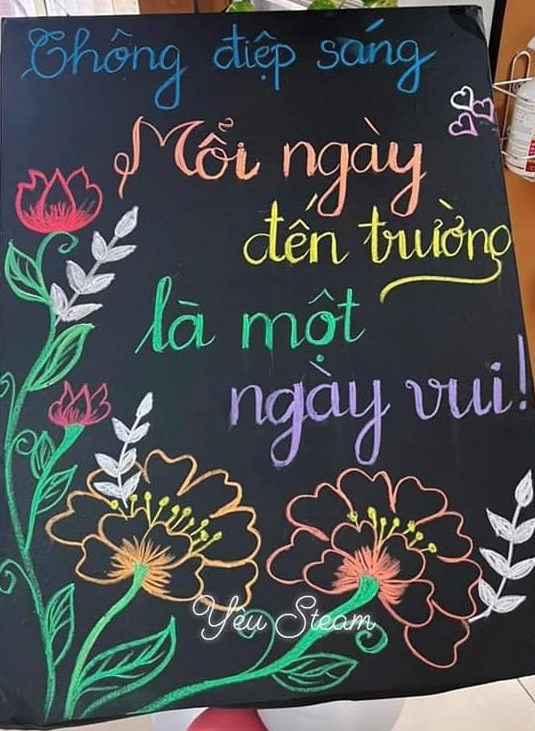 Thông điệp sáng
Mỗi ngày
đến trường
là một
ngày vui!
Yêu Steam